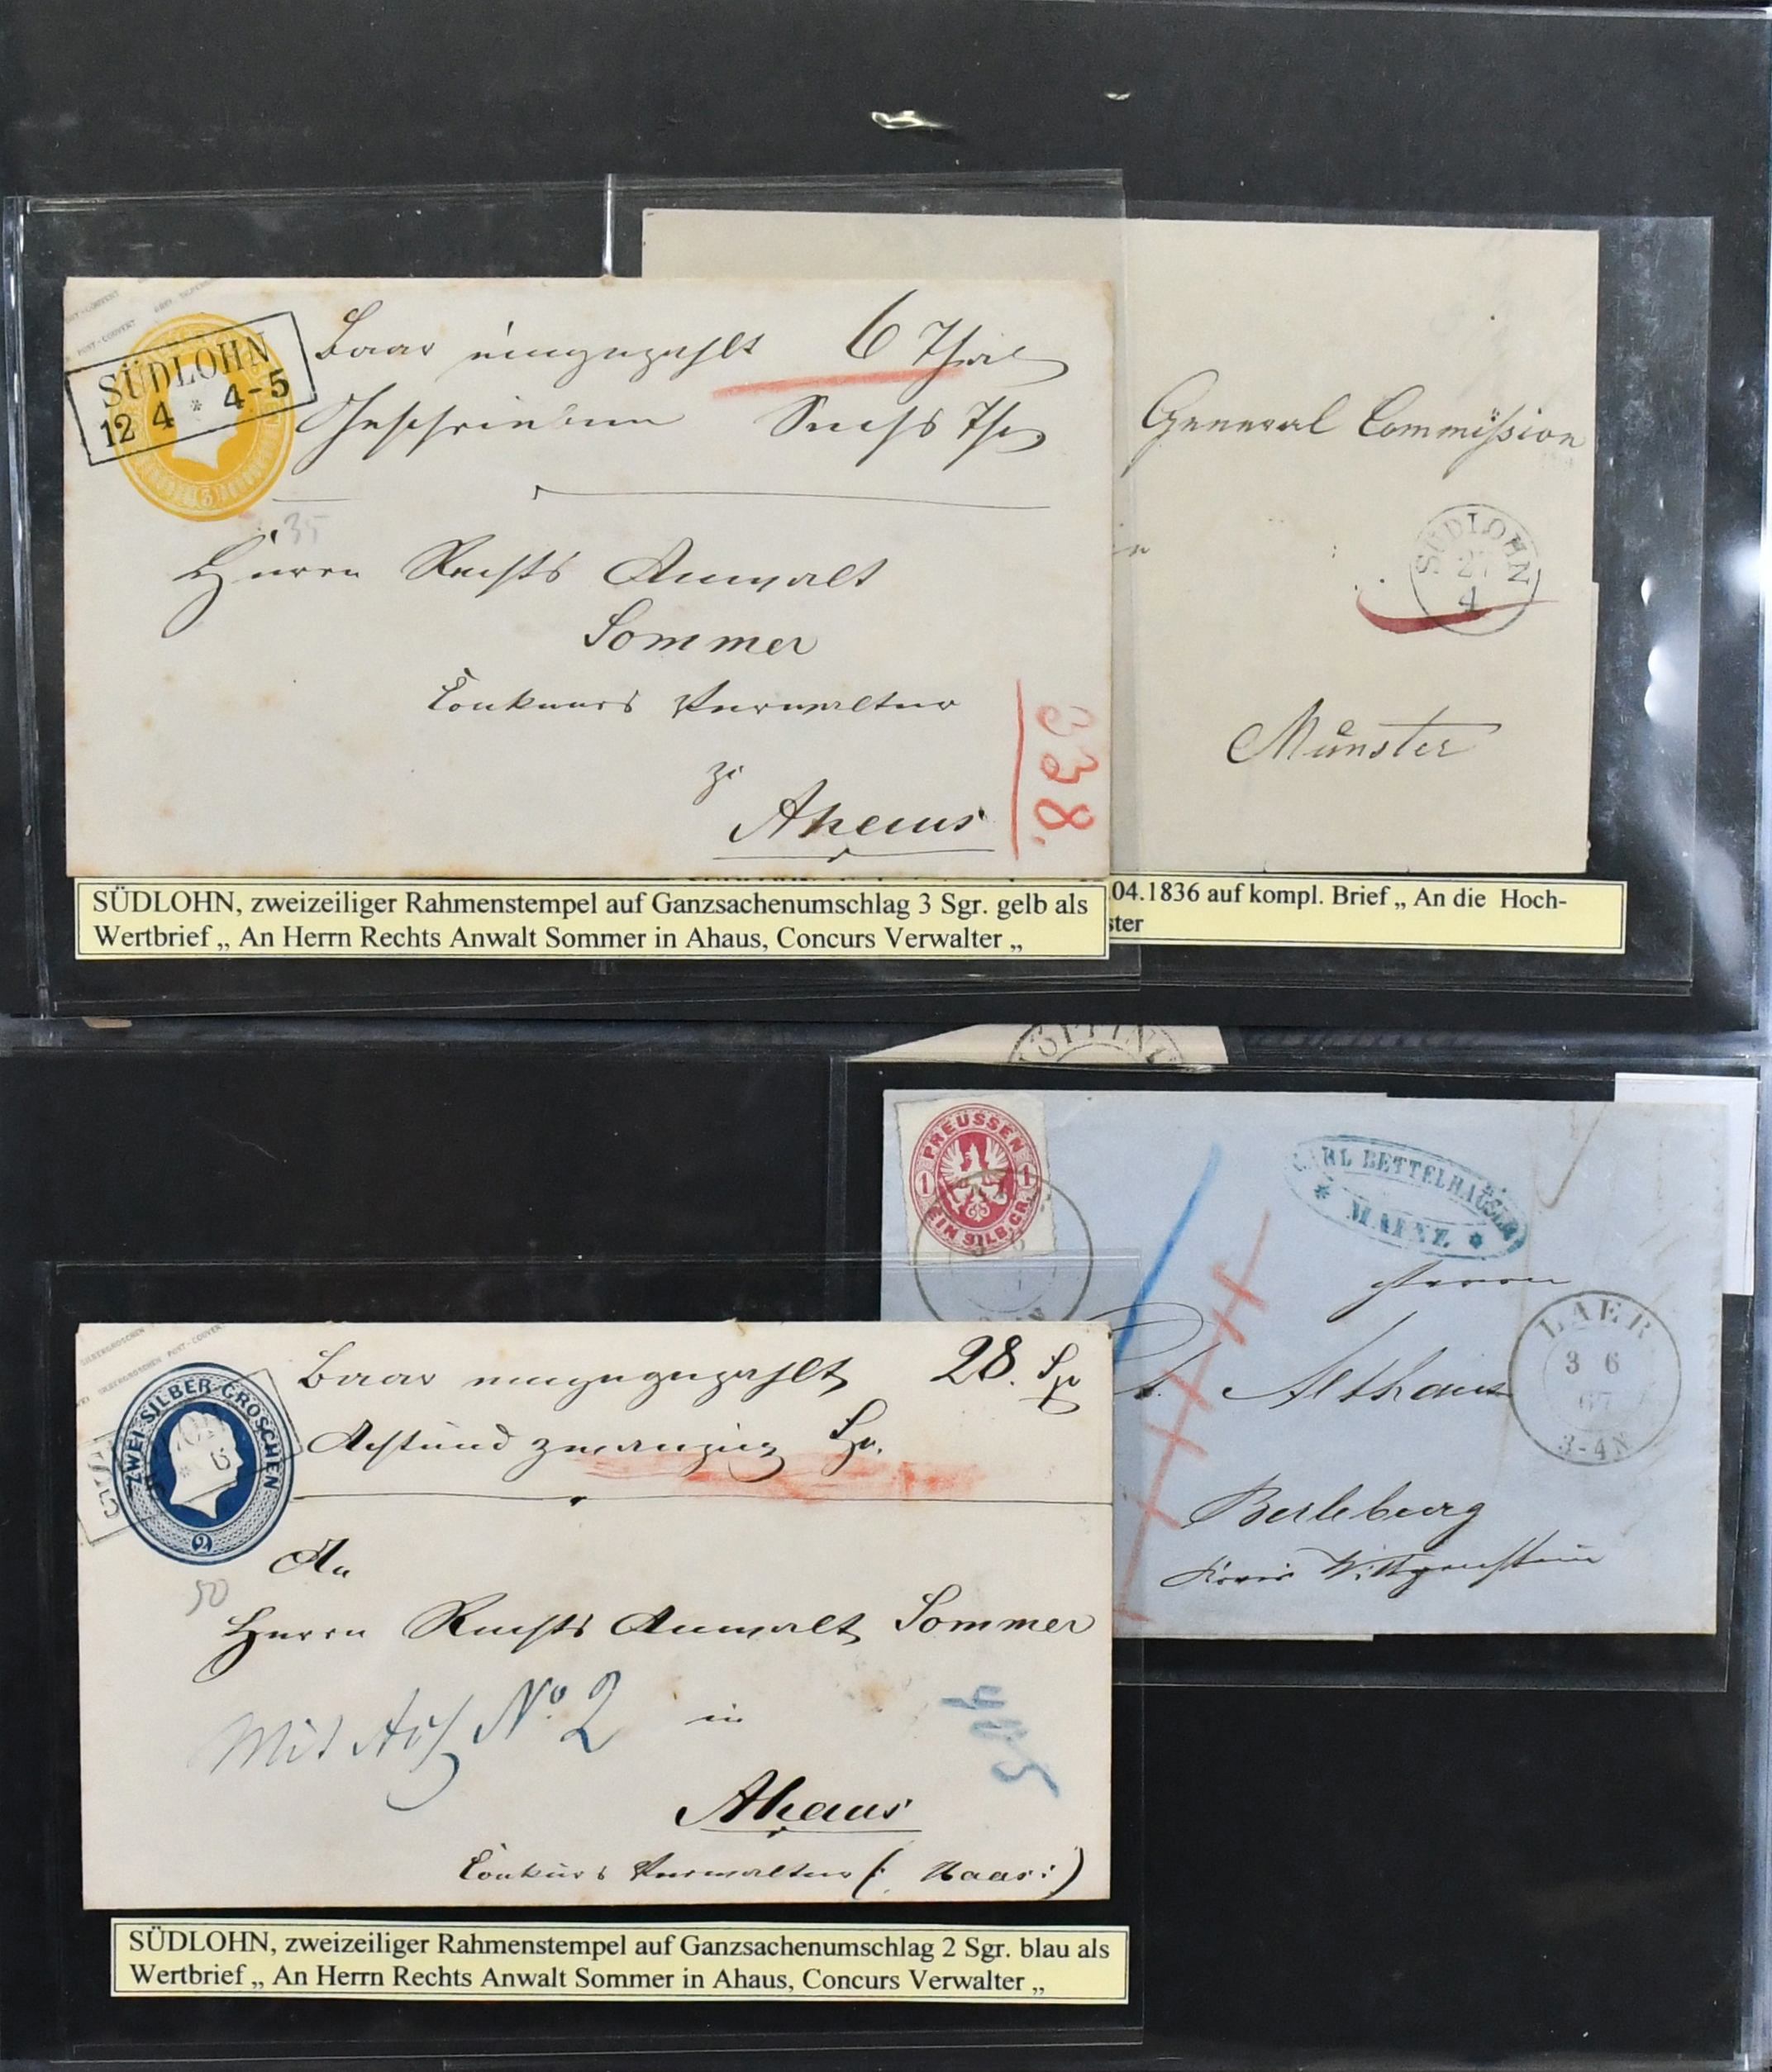 SÜDLOHN
12 4 * 4-5
Baar eingezahlt 6 Thal
Geschrieben Sechs Thr
35
Herrn Rechts Anwalt
Sommer
Conkurs Verwalter
zu
Ahaus
338.
SÜDLOHN, zweizeiliger Rahmenstempel auf Ganzsachenumschlag 3 Sgr. gelb als
Wertbrief „ An Herrn Rechts Anwalt Sommer in Ahaus, Concurs Verwalter „
General Commission
SÜDLOHN
4
Münster
.04.1836 auf kompl. Brief „ An die Hoch-
ster
PREUSSEN
1 1
EIN SILB.GR.
CARL BETTELHÄUSER
* MAINZ *
Herrn
Althaus
LAER
3 6
67
3-4N
Berleburg
Kreis Wittgenstein
ZWEI SILBER GROSCHEN
2
Baar eingezahlt 28. Sgr
Achtundzwanzig Sgr.
An
50
Herrn Rechts Anwalt Sommer
No. 2 in
Ahaus
Conkurs Verwalter (: Haas :)
SÜDLOHN, zweizeiliger Rahmenstempel auf Ganzsachenumschlag 2 Sgr. blau als
Wertbrief „ An Herrn Rechts Anwalt Sommer in Ahaus, Concurs Verwalter „